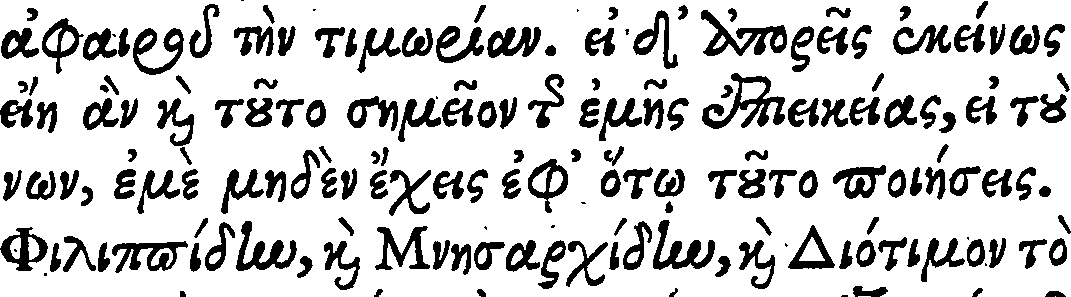 ἀφαιροῦ τὴν τιμωρίαν. εἰ δ' ἀπορεῖς ἐκείνως
εἴη ἂν καὶ τοῦτο σημεῖον τῆς ἐμῆς ἐπιεικείας, εἰ τοὺ
νων, ἐμὲ μηδὲν ἔχεις ἐφ' ὅτῳ τοῦτο ποιήσεις.
Φιλιππίδην, καὶ Μνησαρχίδην, καὶ Διότιμον τὸ